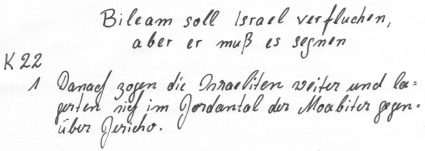 Bileam soll Israel verfluchen,
aber er muß es segnen
K 22
1 Danach zogen die Israeliten weiter und la=
gerten sich im Jordantal der Moabiter gegen=
über Jericho.